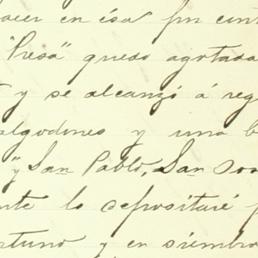 hacer en ésa por cont
"Presa" quedó agotada
y se alcanzó á reg
algodones y una b
" y San Pablo, San
nte lo depositaré p
rtuno y en siembra